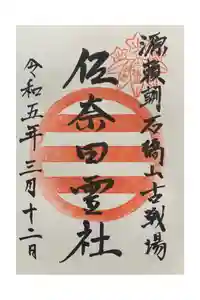 源頼朝石橋山古戦場
佐奈田霊社
令和五年三月十二日